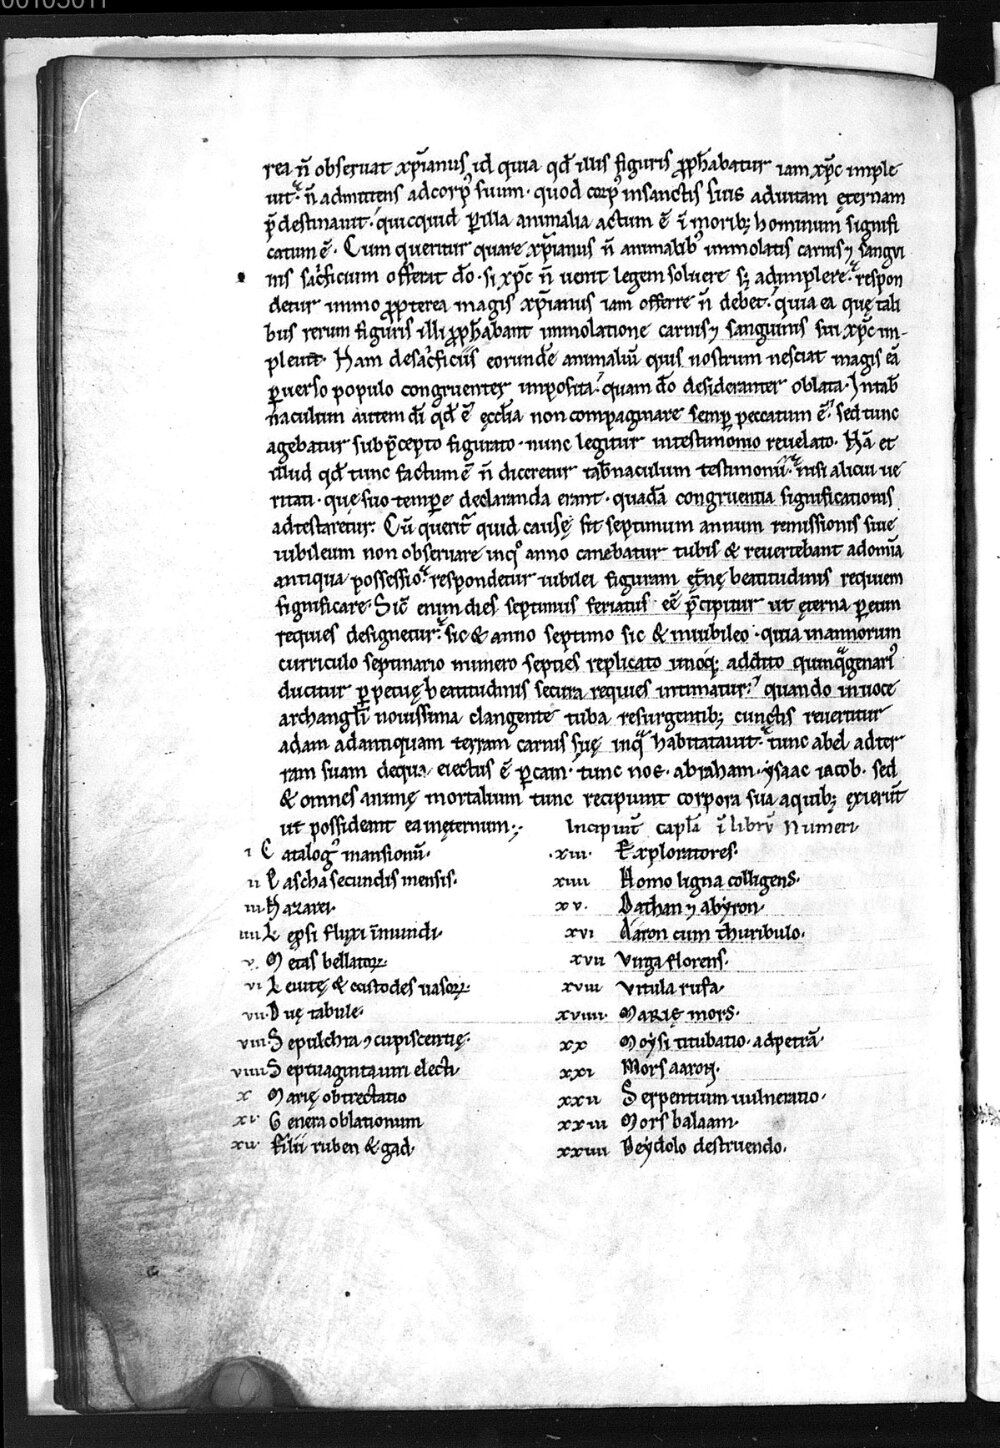 rea n̄ obseruat xp̄ianus id quia qd̄ illis figuris ꝓph̄abatur iam xp̄c imple
uit. n̄ admittens ad corpꝰ suum. quod corpꝰ in sanctis suis ad uitam ęternam
p̄destinauit. quicquid ꝑ illa animalia actum ē ī morib; hominum signifi
catum ē. Cum queritur quare xp̄ianus n̄ animalibꝰ immolatis carnis ⁊ sangui
nis sac̄ficium offerat dō. si xp̄c n̄ uenit legem soluere sꝫ adimplere. respon
detur immo ꝓpterea magis xp̄ianus iam offerre n̄ debet. quia ea quę tali
bus rerum figuris illi ꝓph̄abant immolatione carnis ⁊ sanguinis sui xp̄c im-
pleuit. Nam de sac̄ficiis eorundē animaliū quis nostrum nesciat magis eā
ꝑuerso populo congruenter imposita. quam dō desideranter oblata. In tab̄
naculum autem dī qd̄ ē ęcclīa non compaginare semꝑ peccatum ē. sed tunc
agebatur sub p̄cepto figurato. nunc legitur in testimonio reuelato. Nā et
illud qd̄ tunc factum ē n̄ diceretur tab̄naculum testimonii. nisi alicui ue
ritati. que suo temꝑe declaranda erant. quadā congruentia significationis
adtestaretur. Cū querit̄ quid causę sit septimum annum remissionis siue
iubileum non obseruare in qͦ anno canebatur tubis & reuertebant ad om̄ia
antiqua possessio. respondetur iubilei figuram ęt̄nę beatitudinis requiem
significare. Sic̄ enim dies septimus feriatus eē p̄cipitur ut ęterna ꝑ eum
requies designetur. sic & anno septimo sic & in iubileo. quia in annorum
curriculo septinario numero septies replicato unoq; addito quinqᵃgenariꝰ
ducitur ꝑpetuę beatitudinis secura requies intimatur. quando in uoce
archangl̄i nouissima clangente tuba resurgentib; cunctis reuertitur
adam ad antiquam terram carnis suę in qᵃ habitatauit. tunc abel ad ter
ram suam de qua eiectus ē ꝑ cain. tunc noe. abraham. ysaac iacob. sed
& omnes animę mortalium tunc recipiunt corpora sua a quib; exierūt
ut possideant ea in ęternum. Incipiunt̄ capl̄a ī librū Numeri.
i Catalogꝰ mansionū.
ii Pascha secundis mensis.
iii Nazarei.
iiii Lepsi fluxi īmundi.
v. Metas bellatoꝝ.
vi Leuitę & custodes uasoꝝ.
vii. Duę tabule.
viii Sepulchra ⁊ cupiscentię.
viiii Septuaginta uiri electi.
x Marię obtrectatio
xi. Genera oblationum
xii. Filii ruben & gad.
.xiii. Exploratores.
xiiii Homo ligna colligens.
xv. Dathan ⁊ abyron.
xvi Aaron cum thuribulo.
xvii Virga florens.
xviii Vitula rufa.
xviiii. Marię mors.
xx Moysi titubatio. ad petrā.
xxi Mors aaron.
xxii Serpentium uulneratio.
xxiii Mors balaam.
xxiiii De ydolo destruendo.